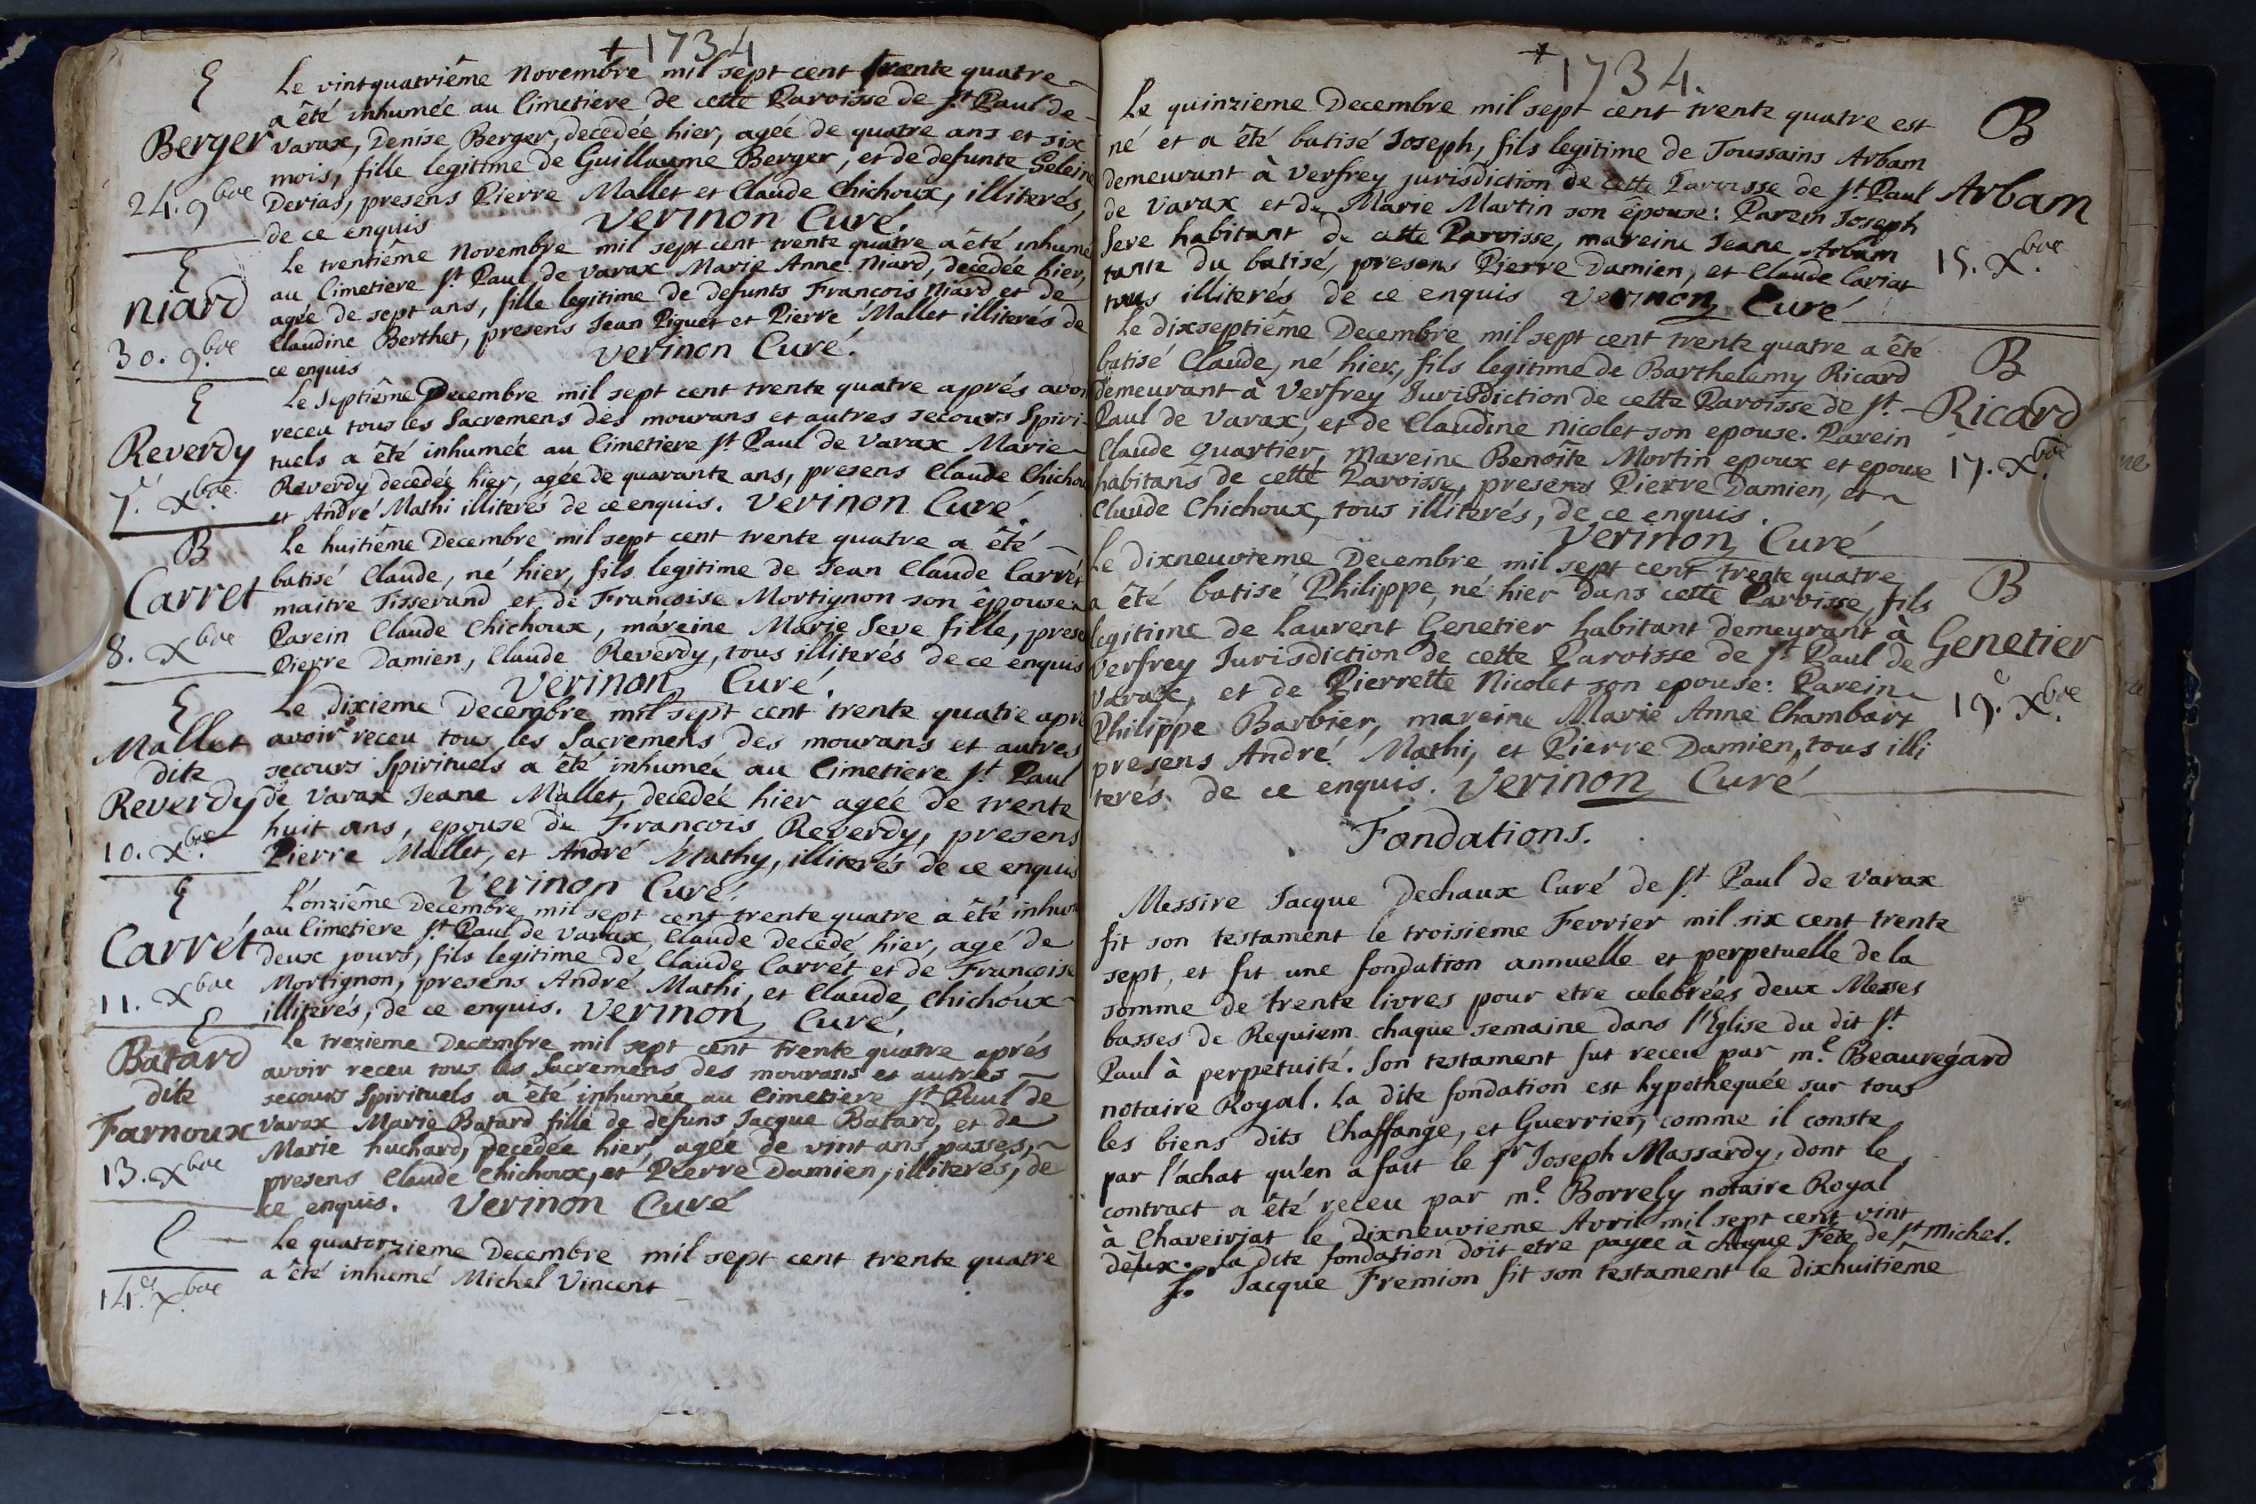 + 1734
E
Berger
24. 9bre
Le vintquatriême Novembre mil sept cent trente quatre
a êté inhumée au Cimetiere de cette Paroisse de St. Paul de
Varax, Denise Berger, decedée hier, agée de quatre ans et six
mois, fille legitime de Guillaume Berger, et de defunte Geleine
Derias, presens Pierre Mallet et Claude Chichoux, illiterés,
de ce enquis Verinon Curé.
E
Niard
30. 9bre
Le trentiême Novembre mil sept cent trente quatre a êté inhumé
au Cimetiere St. Paul de Varax Marie Anne Niard, decedée hier,
agée de sept ans, fille legitime de defunts Francois Niard et de
Claudine Berthet, presens Jean Piquet et Pierre Mallet illiterés de
ce enquis Verinon Curé.
E
Reverdy
7e. Xbre
Le septiême Decembre mil sept cent trente quatre aprés avoi
receu tous les Sacremens des mourans et autres secours Spiri-
tuels a êté inhumée au Cimetiere St. Paul de Varax Marie
Reverdy decedée hier, agée de quarante ans, presens Claude Chichou
et André Mathi illiterés de ce enquis. Verinon Curé.
B
Carret
8. Xbre
Le huitiême Decembre mil sept cent trente quatre a êté
batisé Claude, né hier, fils legitime de Jean Claude Carrét
maitre Tisserand et de Francoise Mortignon son êpouse.
Parein Claude Chichoux, mareine Marie Seve fille, prese
Pierre Damien, Claude Reverdy, tous illiterés de ce enquis
Verinon Curé.
E
Mallet
dite
Reverdy
10. Xbre
Le dixieme Decembre mil sept cent trente quatre apré
avoir receu tous les Sacremens des mourans et autres
secours Spirituels a êté inhumée au Cimetiere St. Paul
de Varax Jeane Mallet, decedée hier agée de trente
huit ans, epouse de Francois Reverdy, presens
Pierre Mallet, et André Mathy, illiterés de ce enquis
Verinon Curé.
E
Carrét
11. Xbre
L'onziême Decembre mil sept cent trente quatre a êté inhum
au Cimetiere St. Paul de Varax, Claude decedé hier, agé de
deux jours, fils legitime de Claude Carrét et de Françoise
Mortignon, presens André Mathi, et Claude Chichoux
illiterés, de ce enquis. Verinon Curé.
E
Batard
dite
Farnoux
13. Xbre
Le trezieme Decembre mil sept cent trente quatre aprés
avoir receu tous les Sacremens des mourans et autres
secours Spirituels a êté inhumée au Cimetiere St. Paul de
Varax Marie Batard fille de defuns Jacque Batard, et de
Marie huchard, decedée hier, agée de vint ans passés,
presens Claude Chichoux, et Pierre Damien, illiterés, de
ce enquis. Verinon Curé
E
14e. Xbre
Le quatorzieme Decembre mil sept cent trente quatre
a êté inhumé Michel Vincent
+ 1734.
Le quinzieme Decembre mil sept cent trente quatre est
né et a êté batisé Joseph, fils legitime de Toussains Arbam
demeurant à Verfrey jurisdiction de cette Paroisse de St. Paul
de Varax et de Marie Martin son êpouse: Parein Joseph
Seve habitant de cette Paroisse, mareine Jeane Arbam
tante du batisé, presens Pierre Damien, et Claude Cariat
tous illiterés de ce enquis Verinon Curé
B
Arbam
15. Xbre
Le dixseptiême Decembre mil sept cent trente quatre a êté
batisé Claude, né hier, fils legitime de Barthelemy Ricard
demeurant à Verfrey Jurisdiction de cette Paroisse de St.
Paul de Varax, et de Claudine Nicolet son epouse. Parein
Claude Quartier, mareine Benoîte Mortin epoux et epouse
habitans de cette Paroisse, presens Pierre Damien, et
Claude Chichoux, tous illiterés, de ce enquis.
Verinon Curé
B
Ricard
17. Xbre
Le dixneuvieme Decembre mil sept cent trente quatre
a êté batisé Philippe, né hier dans cette Paroisse, fils
legitime de Laurent Genetier habitant demeurant à
Verfrey Jurisdiction de cette Paroisse de St. Paul de
Varax, et de Pierrette Nicolet son epouse: Parein
Philippe Barbier, mareine Marie Anne Chambart
presens André Mathi, et Pierre Damien, tous illi
terés de ce enquis. Verinon Curé
B
Genetier
19e. Xbre
Fondations.
Messire Jacque Dechaux Curé de St. Paul de Varax
fit son testament le troisieme Fevrier mil six cent trente
sept, et fit une fondation annuelle et perpetuelle de la
somme de trente livres pour etre celebrées deux Messes
basses de Requiem chaque semaine dans l'Eglise du dit St.
Paul à perpetuité. Son testament fut receu par me. Beauregard
notaire Royal. La dite fondation est hypothequée sur tous
les biens dits Chaffange, et Guerrier, comme il conste
par l'achat qu'en a fait le Sr Joseph Massardy, dont le
contract a êté receu par me. Borrely notaire Royal
à Chaveiriat le dixneuvieme Avril mil sept cent vint
deux. La dite fondation doit etre payée à chaque Fête de St Michel.
S. Jacque Fremion fit son testament le dixhuitiême